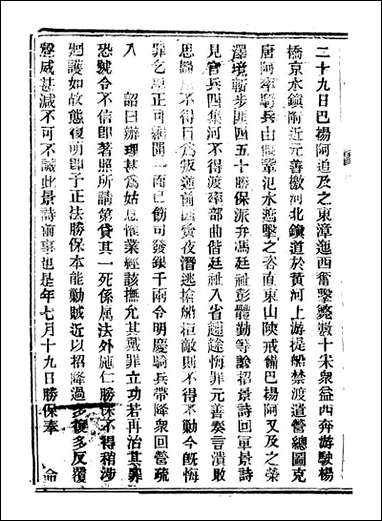 二十九日巴楊阿追及之東漳迤西奮擊斃數十宋衆益西奔游駛楊
橋京水鎮附近元善檄河北鎮道於黃河上游提船禁渡道管總圖克
唐阿率騎兵由偃鞏氾水遮擊之咨直東山陝戒備巴楊阿又及之滎
澤境斬步匪四五十勝保派弁馮廷祉彭體勤等諭招景詩回軍景詩
見官兵四集河不得渡率部曲偕廷祉入省遞悔罪元善奏言潰敗
思歸不得目爲叛逆前四黃夜潛逃槍船柜敵則不得不勤今旣悔
罪乞恩正可網開一面已飭司發銀千兩令明慶騎兵帶降衆回營疏
入　詔曰辦理甚爲姑息惟業經該撫允其戴罪立功若再治其罪
恐號令不信卽著照所請第貸其一死係屬法外施仁勝保不得稍涉
廻護如故態復明卽予正法勝保本能勦賊近以招降過多復多反覆
聲威甚減不可不誡此景詩前事也是年七月十九日勝保奉　命